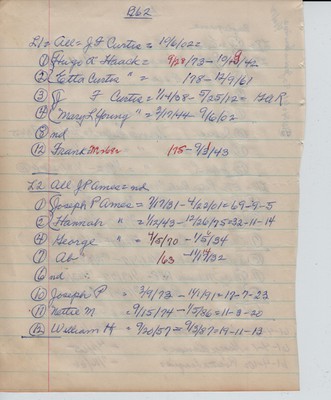 B62
L1 = All = J F Curtis = 1906/02 =
① Hugo A Haack = 9/28/73 - 12/9/42
② Etta Curtis " = 178 - 12/9/61
③ J F Curtis = 1/14/38 - 5/25/12 = GAR
④ Mary L Young " = 2/17/44 9/6/02
⑤ nd
⑫ Frank 175 - 9/3/43
L2 All J P Ames = nd
① Joseph P Ames = 7/17/31 - 4/22/01 = 69-9-5
② Hannah " = 1/12/43 - 12/26/75 = 32-11-14
④ George " = 4/5/70 - 4/5/34
⑦ " 163 - 11/14/32
⑥ nd
⑩ Joseph P = 3/9/73 - 11/1/91 = 17-7-23
⑪ Nettie M = 9/15/74 - 1/5/86 = 11-3-20
⑫ William H = 9/20/57 = 9/3/87 = 19-11-13